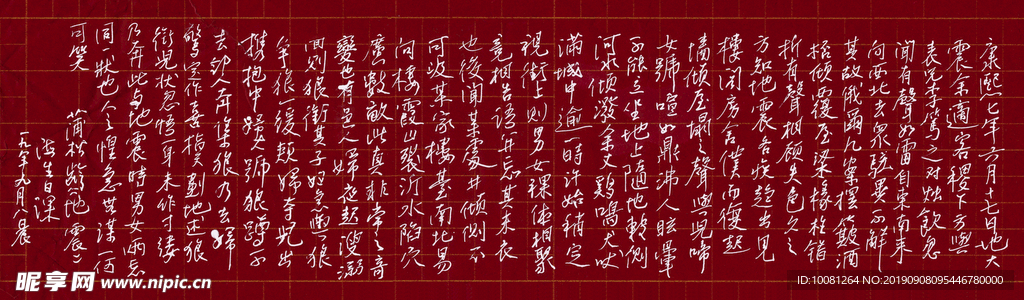 康熙七年六月十七日地大
震余適客稷下方與
表兄李篤之对烛飲忽
闻有聲如雷自東南来
向西北去众骇異不解
其故俄爾几案摆簸酒
杯倾覆屋梁椽柱错
折有聲相顾失色久之
方知地震各疾趋出見
樓闲房舍僕而復起
墙倾屋塌之聲與兒啼
女號喧如鼎沸人眩暈
不能立坐地上隨地转侧
河水倾潑余丈鷄鳴犬吠
满城中逾一時许始稍定
视街上则男女裸体相聚
竟相告语并忘其未衣
也後闻某處井倾侧不
可汲某家樓臺南北易
向棲霞山裂沂水陷穴
廣數畝此真非常之奇
變也有邑人婦夜起溲溺
回则狼衔其子婦急與狼
争狼一缓颊婦夺兒出
携抱中婦號狼蹲不
去人奔集狼乃去婦
驚定作喜指划地述狼
衔兒状忽悟一身未作寸缕
乃奔此與地震時男女兩忘
同一狀也人之惶急無谋一何
可笑 蒲松龄地震
生日课
年八月晨
昵享网 www.nipic.cn
ID:10081264 NO:20190908095446780000